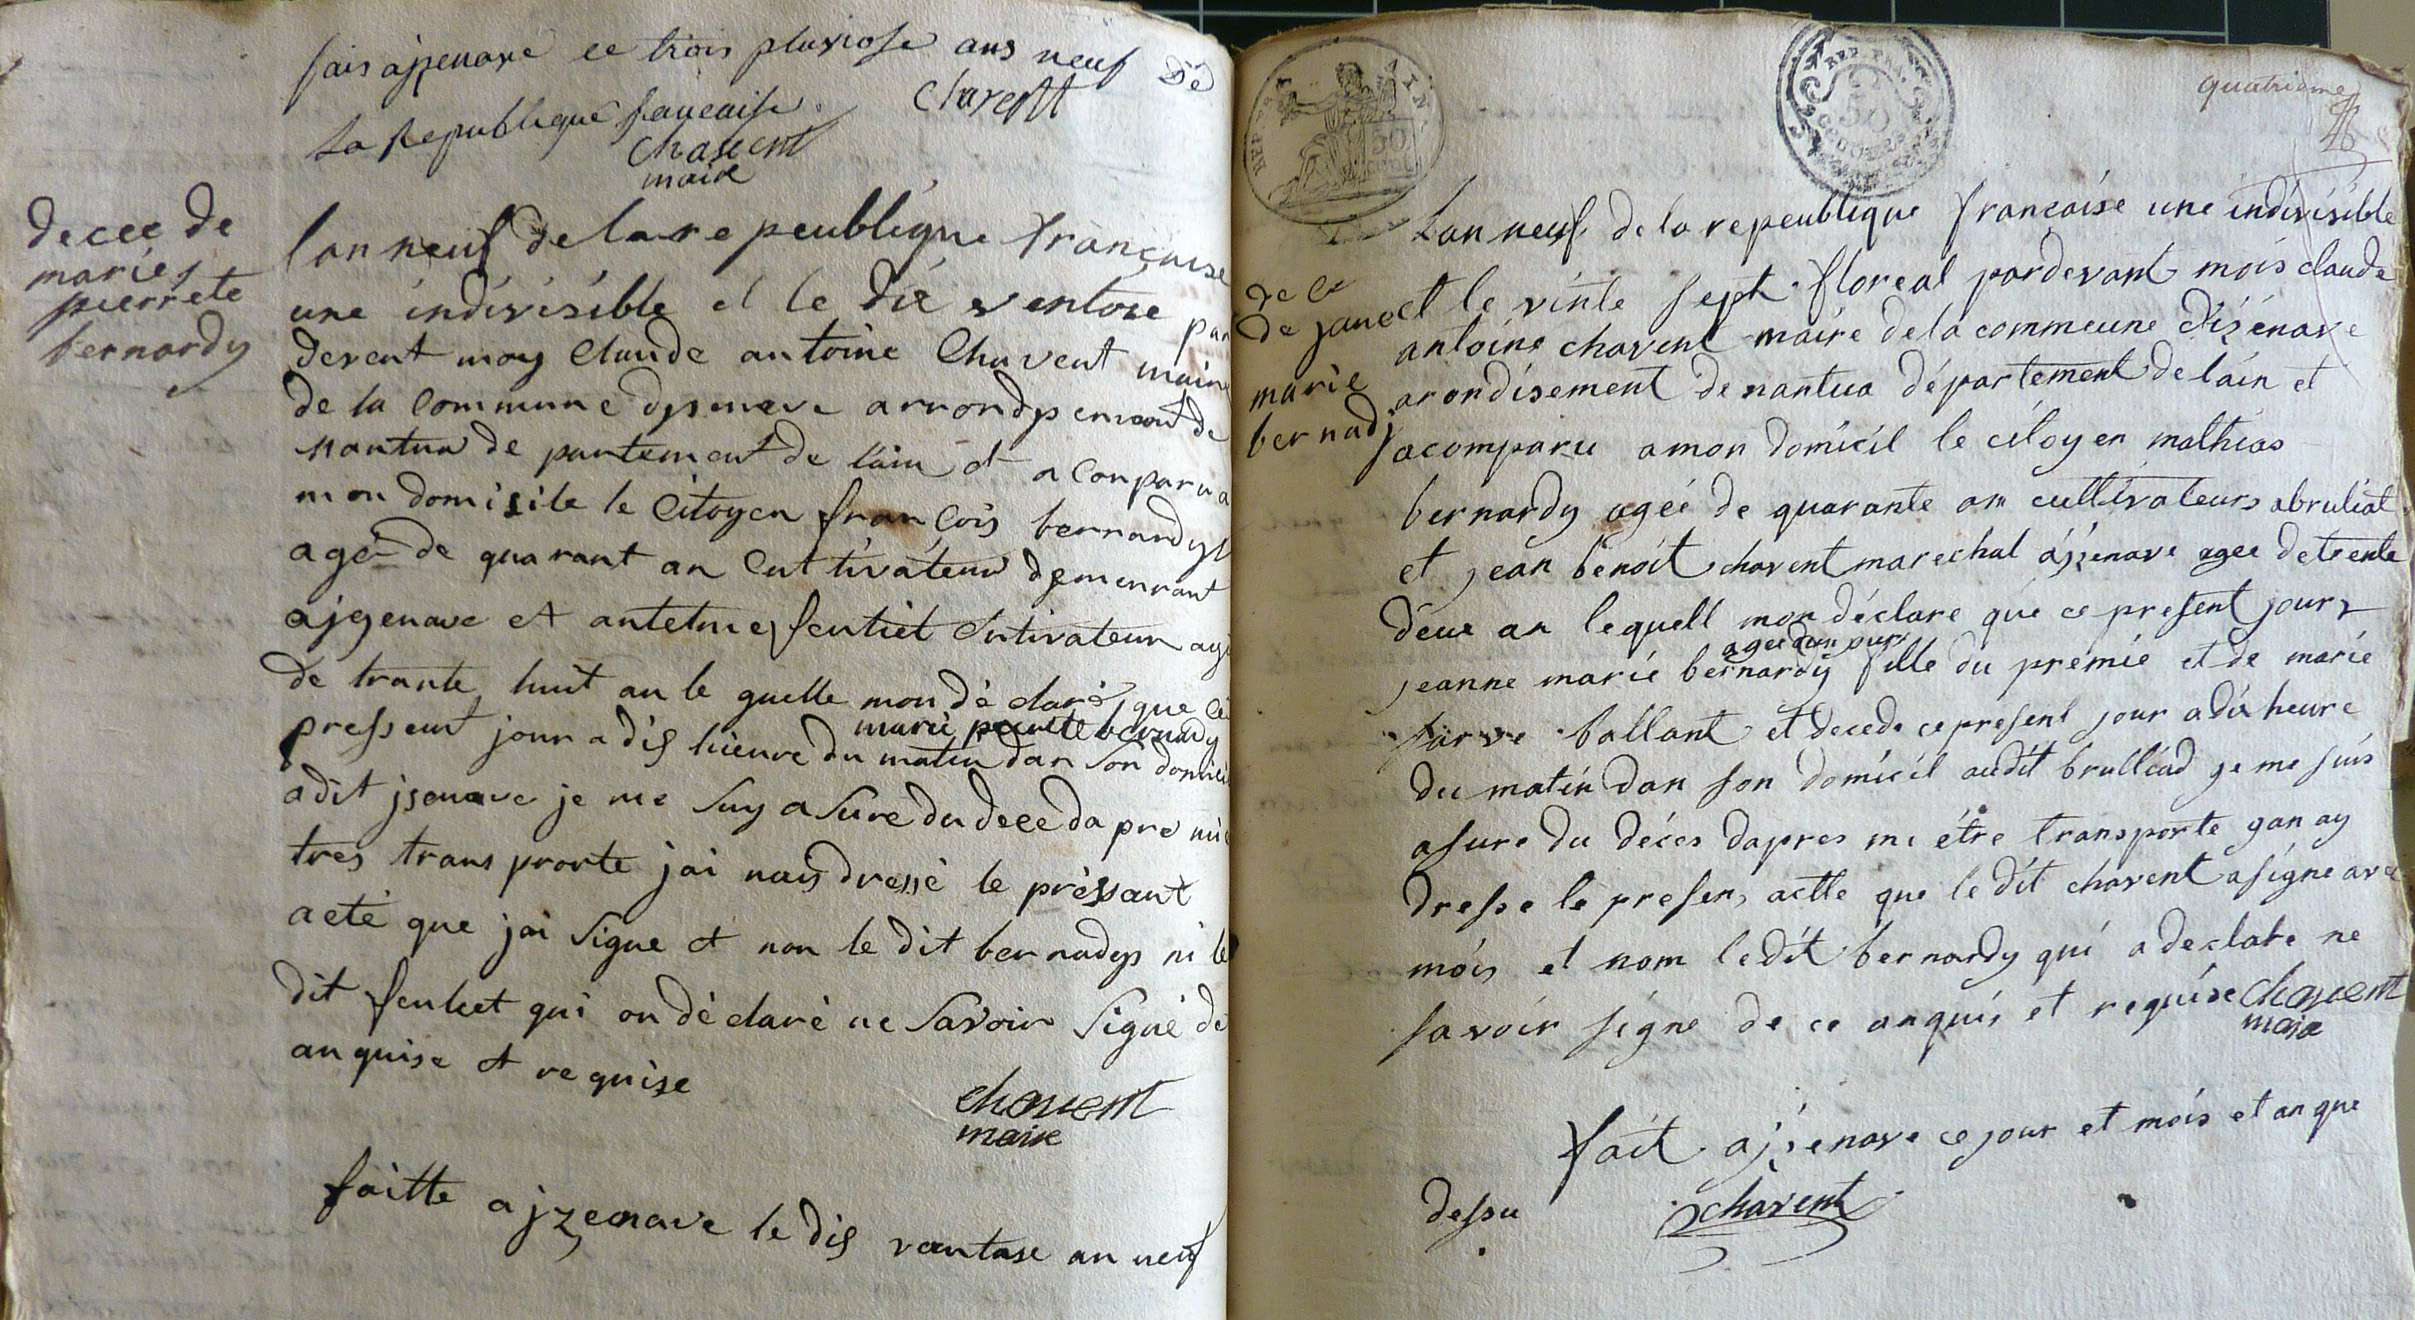 fais ajzenave ce trois pluviose ans neuf de
la Republique francaise. Chavent
Chavent
maire
decee de
maries
pierrete
bernardy
lan neuf de la repeublique françaisse
une indivisible et le dix ventose par
devent moy Claude antoine Chavent maire
de la Commune dysenave arrondysement de
nantua de partement de lain et a Conparu a
mon domisile le Citoyen francois bernardys
agé de quarant an Cultivateur demeurant
ajzenave et antelme Cultivateur agé
de trante huit an le quelle mon dé claré que ce
marie pierrette bernardy
pressent jour a dis hieure du matin dan son domicil
adit jsenave je me suy asure du decee dapre mi
tres trans prorte jai nay dressé le prèssant
acte que jai signe et non le dit bernadys ni le
dit qui on dè claré ne savoir signé de
an quise et re quise
Chavent
maire
faitte a jzenave le dis vantose an neuf
quatrieme
REP. FRA.
50
Lan neuf de la repeublique francaise une indivisible
de ce
de jane
marie
bernadj
et le vinte sept floreal pardevant mois claude
antoine chavent maire de la commeune dizenave
arondisement de nantua département de lain et
acomparu a mon domicil le citoyen mathias
bernardy ageé de quarante an cultivateurs abruliat
et jean benoit chavent marechal ajzenave agee de trente
deux an lequell mon déclare que ce present jour
agee dun jour
jeanne marie bernardy fille du premié et de marie
ballant et decede ce present jour a dix heure
du matin dan son domicil audit brulliad je me suis
asure du déces dapres mi étre transporte gan ay
dresse le presens actte que le dit chavent a signe avec
mois et nom ledit bernardy qui a declare ne
savoir signe de ce anquis et requise Chavent
maire
fait ajzenave ce jour et mois et an que
dessu chavent